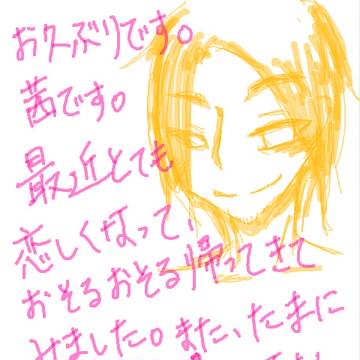 お久ぶりです。
茜です。
最近とても
恋しくなって、
おそるおそる帰ってきて
みました。また、たまに